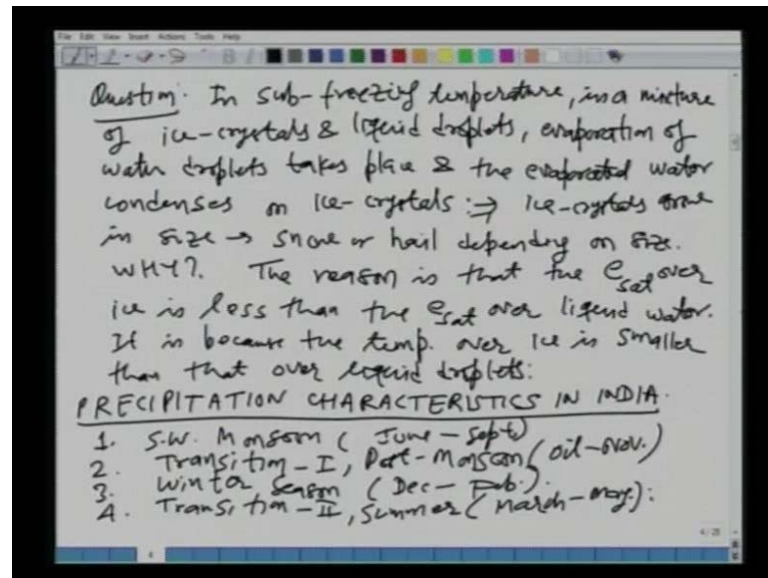 File Edit View Insert Actions Tools Help
Question: In sub-freezing temperature, in a mixture
of ice-crystals & liquid droplets, evaporation of
water droplets takes place & the evaporated water
condenses on ice-crystals :⇒ ice-crystals grow
in size → snow or hail depending on size.
WHY?. The reason is that the e_sat over
ice is less than the e_sat over liquid water.
It is because the temp. over ice is smaller
than that over liquid droplets:
PRECIPITATION CHARACTERISTICS IN INDIA.
1. S.W. Monsoon ( June - Sept)
2. Transition-I, Post-Monsoon ( Oct-Nov.)
3. Winter Season ( Dec- Feb.).
4. Transition-II, Summer ( March-May):
4/28
4